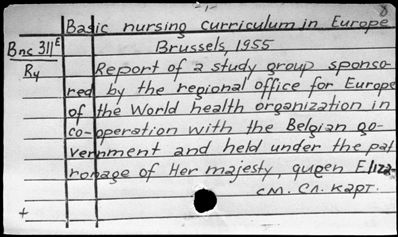 -1- 8
Basic nursing curriculum in Europe
Bnc 311E Brussels, 1955
Ry Report of a study group sponso-
red by the regional office for Europe
of the World health organization in
co-operation with the Belgian go-
vernment and held under the pat
ronage of Her majesty, queen Eliza-
см. сл. карт.
+